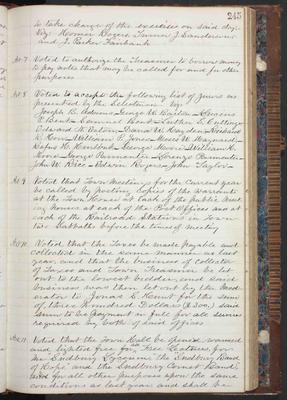 245
to take charge of the exercises on said day.
Viz: Homer Rogers Turner J. Sanderson
and J. Parker Fairbank
Art 7 Voted to authorize the Treasurer to borrow money
to pay notes that may be called for and for other
purposes
Art 8 Voted to accept the following list of jurors as
presented by the Selectmen. Viz.
Joseph B. Adams, George H. Bastin,
E. Bent, Luther E. Cutting,
Edward H. Eaton, Daniel W. Hayden,
H. Horn, William T. Jones, Moses W. Maynard,
Rufus H. Hurlbut, George Moore, William H.
Moore, George Parmenter, Lorenzo Parmenter,
John W. Rice, Edwin Rogers, John Taylor
Art 9 Voted that Town Meetings for the current year
be called by posting copies of the warrants
at the Town House at each of the public meet
ing houses at each of the Post Offices and at
each of the Railroad Stations in town
two Sabbaths before the time of meeting
Art 10. Voted that the Taxes be made payable and
collected in the same manner as last
year, and that the business of Collector
of Taxes and Town Treasurer be let
out to the lowest bidder, and said
business was then let out by the Mod-
erator to Jonas S. Hunt for the sum
of three hundred Dollars ($300.) said
sum to be payment in full for all service
required by both of said offices
Art 11. Voted that the Town Hall be opened warmed
and lighted free for all Free Lectures for
the Sudbury Lyceum the Sudbury Band
of Hope and the Sudbury Cornet Band
for all other purposes upon the same
conditions as last year and shall be